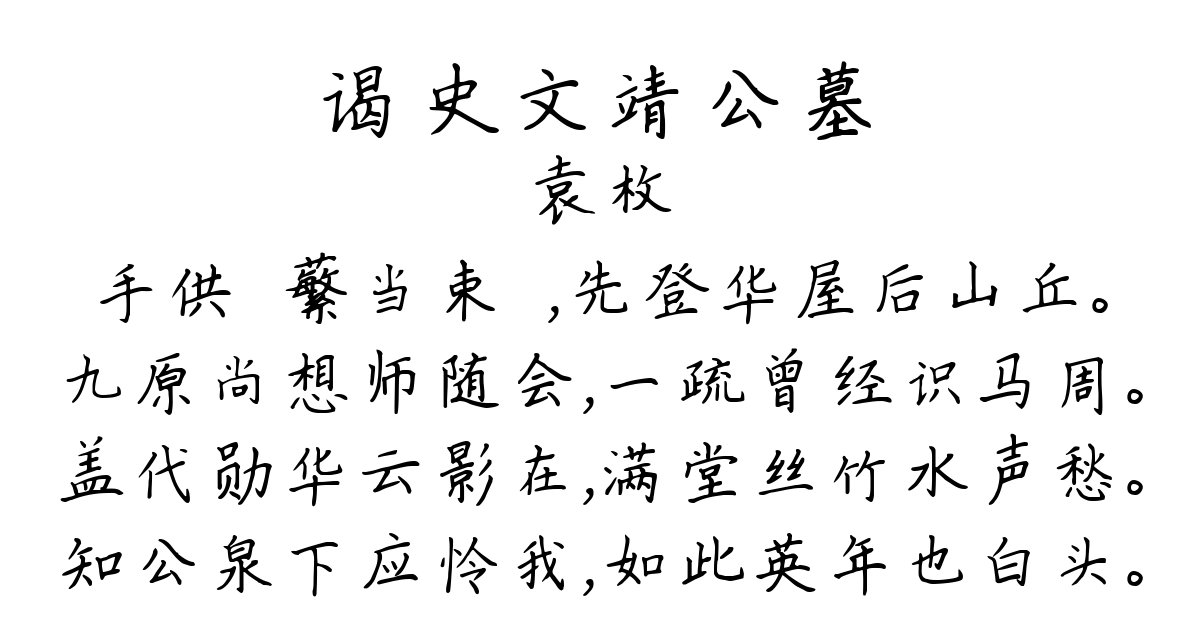 谒史文靖公墓
袁枚
手供 蘩当束 ,先登华屋后山丘。
九原尚想师随会,一疏曾经识马周。
盖代勋华云影在,满堂丝竹水声愁。
知公泉下应怜我,如此英年也白头。